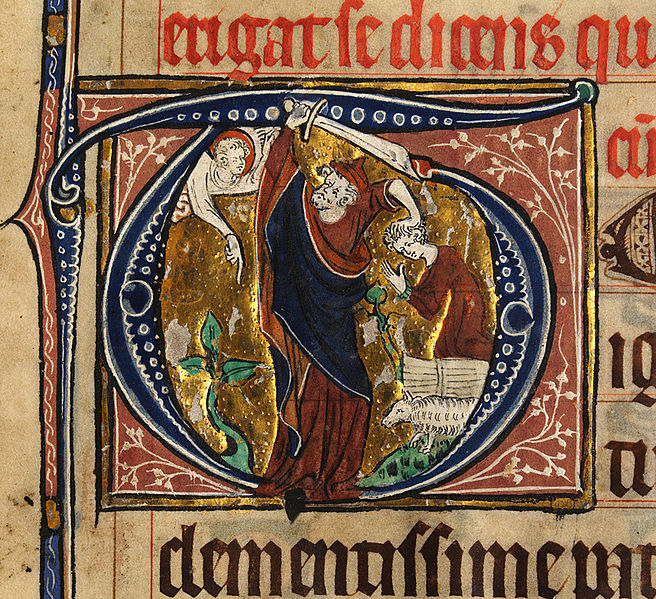 erigat se dicens qu
T
ig
tu
clementissime pat